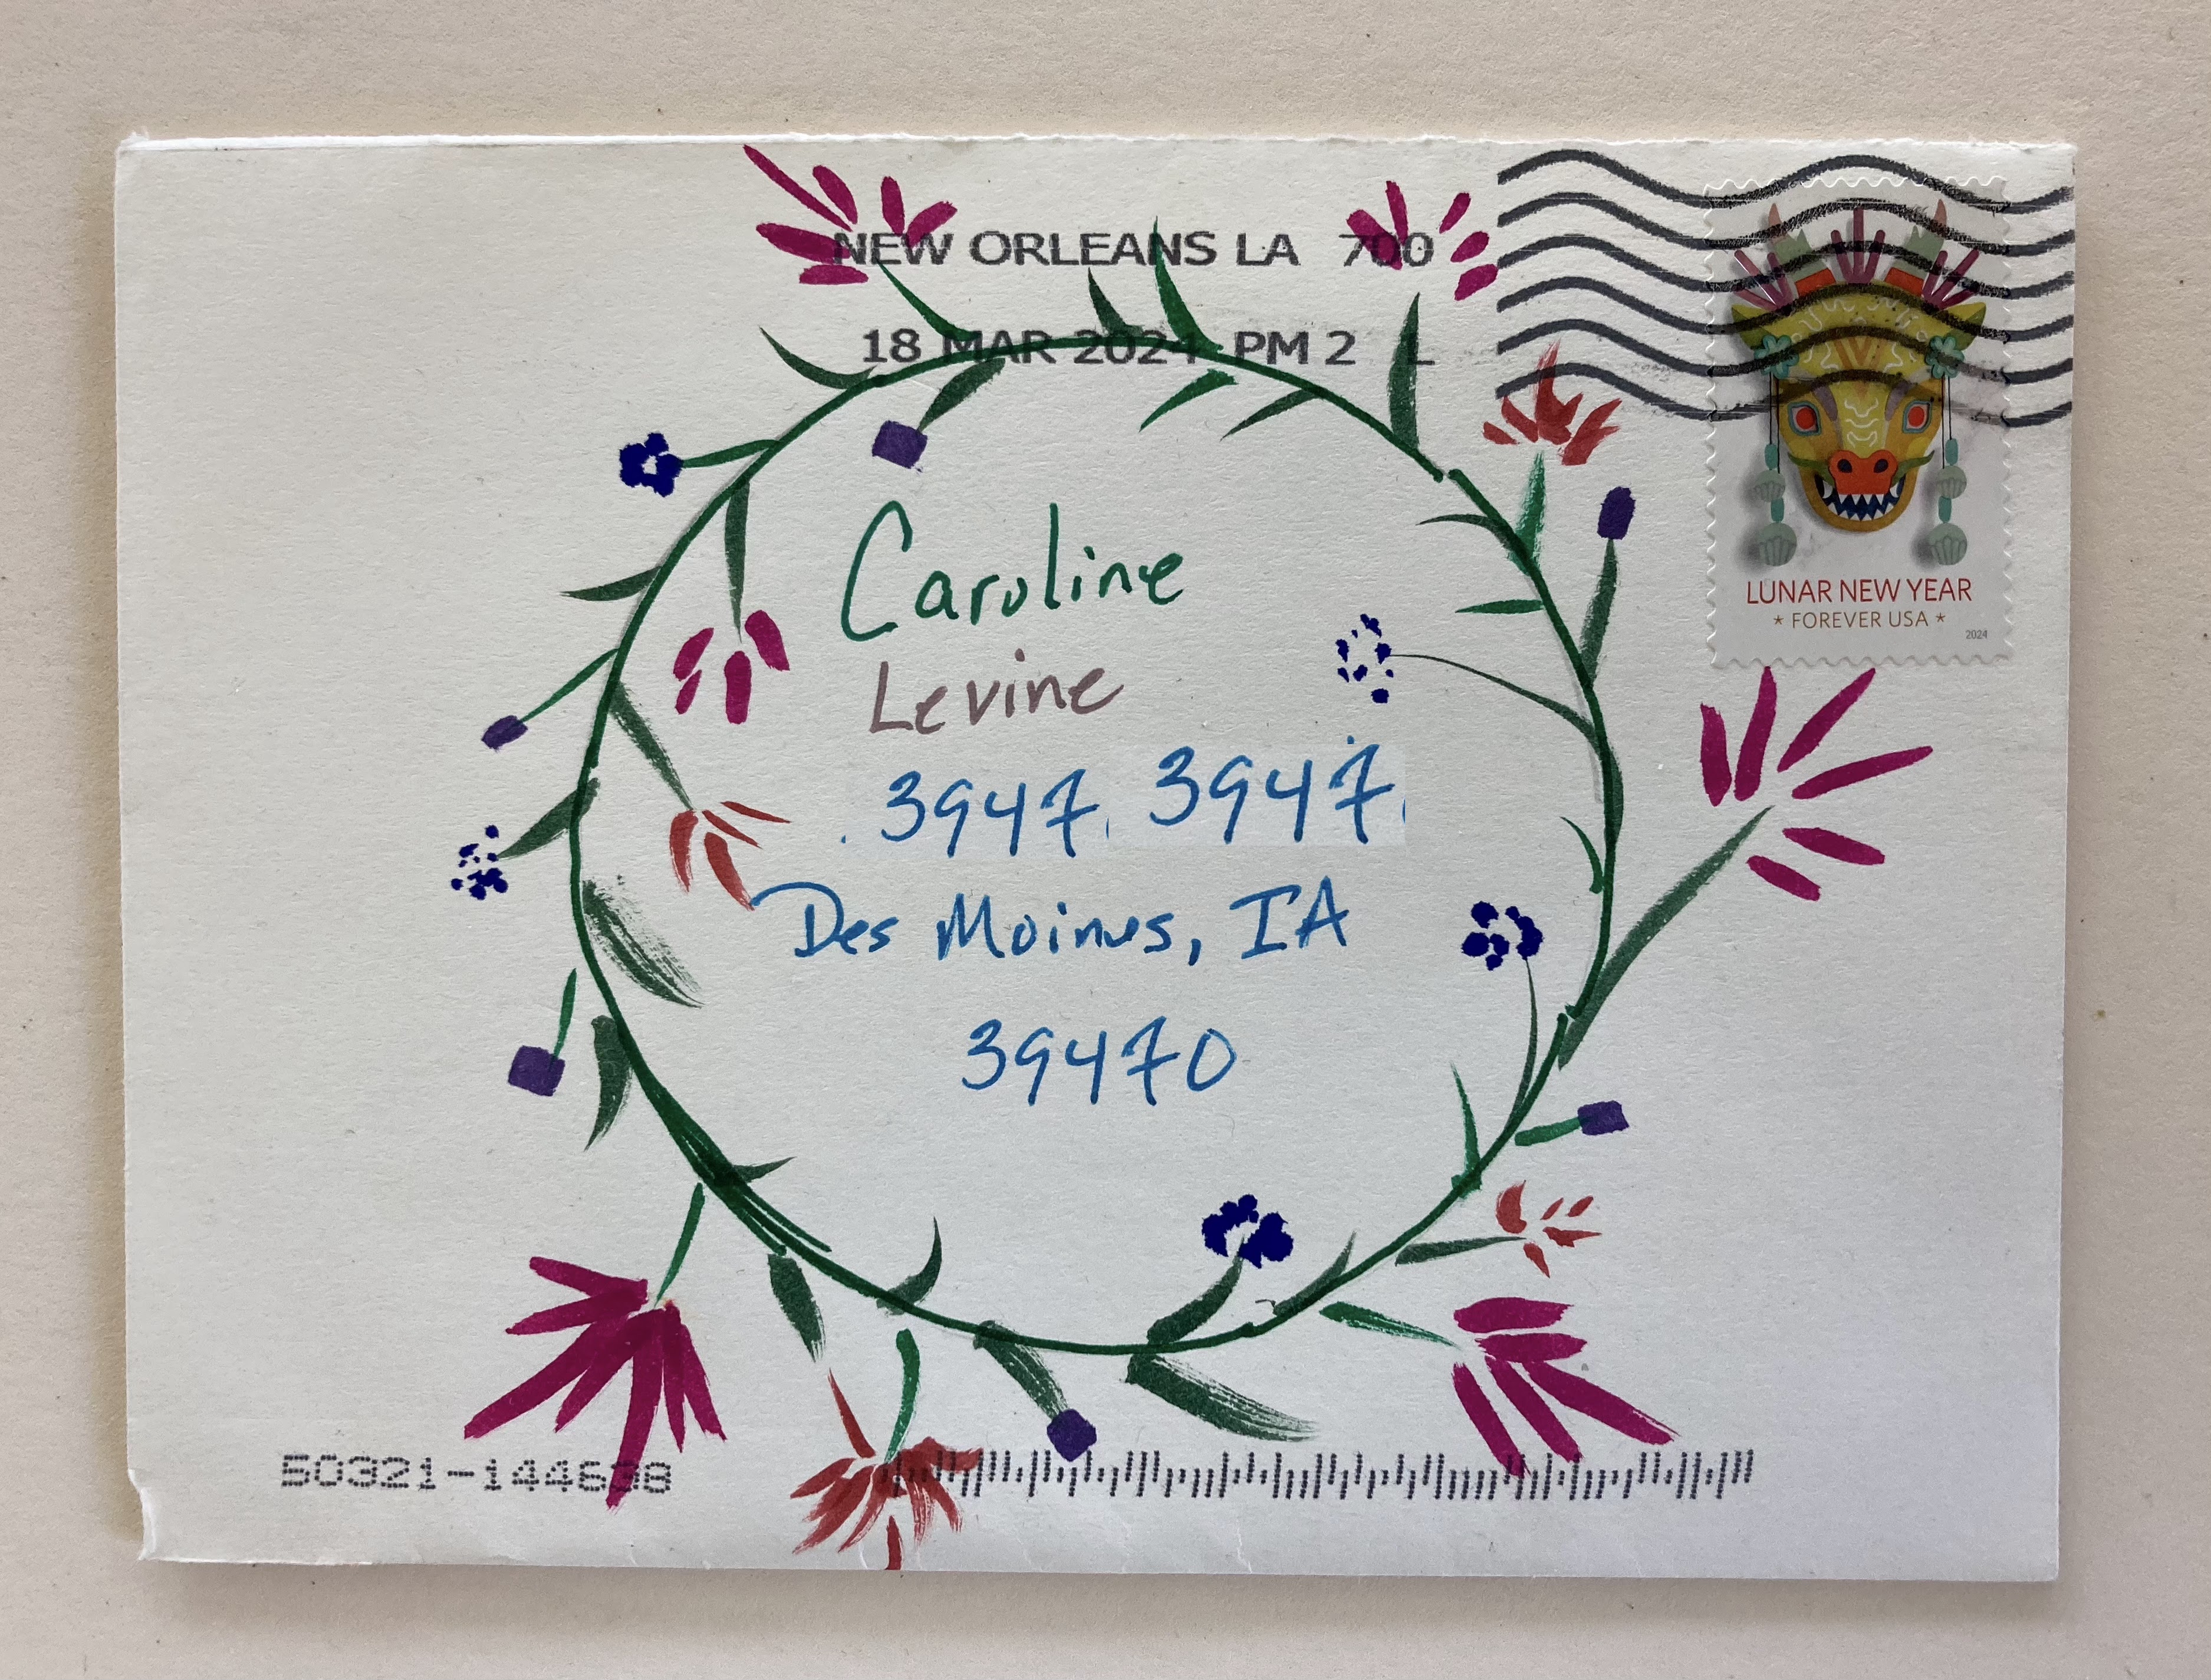 NEW ORLEANS LA 700
18 MAR 2024 PM 2 L
LUNAR NEW YEAR
* FOREVER USA *
2024
Caroline
Levine
3947 3947
Des Moines, IA
39470
50321-144638